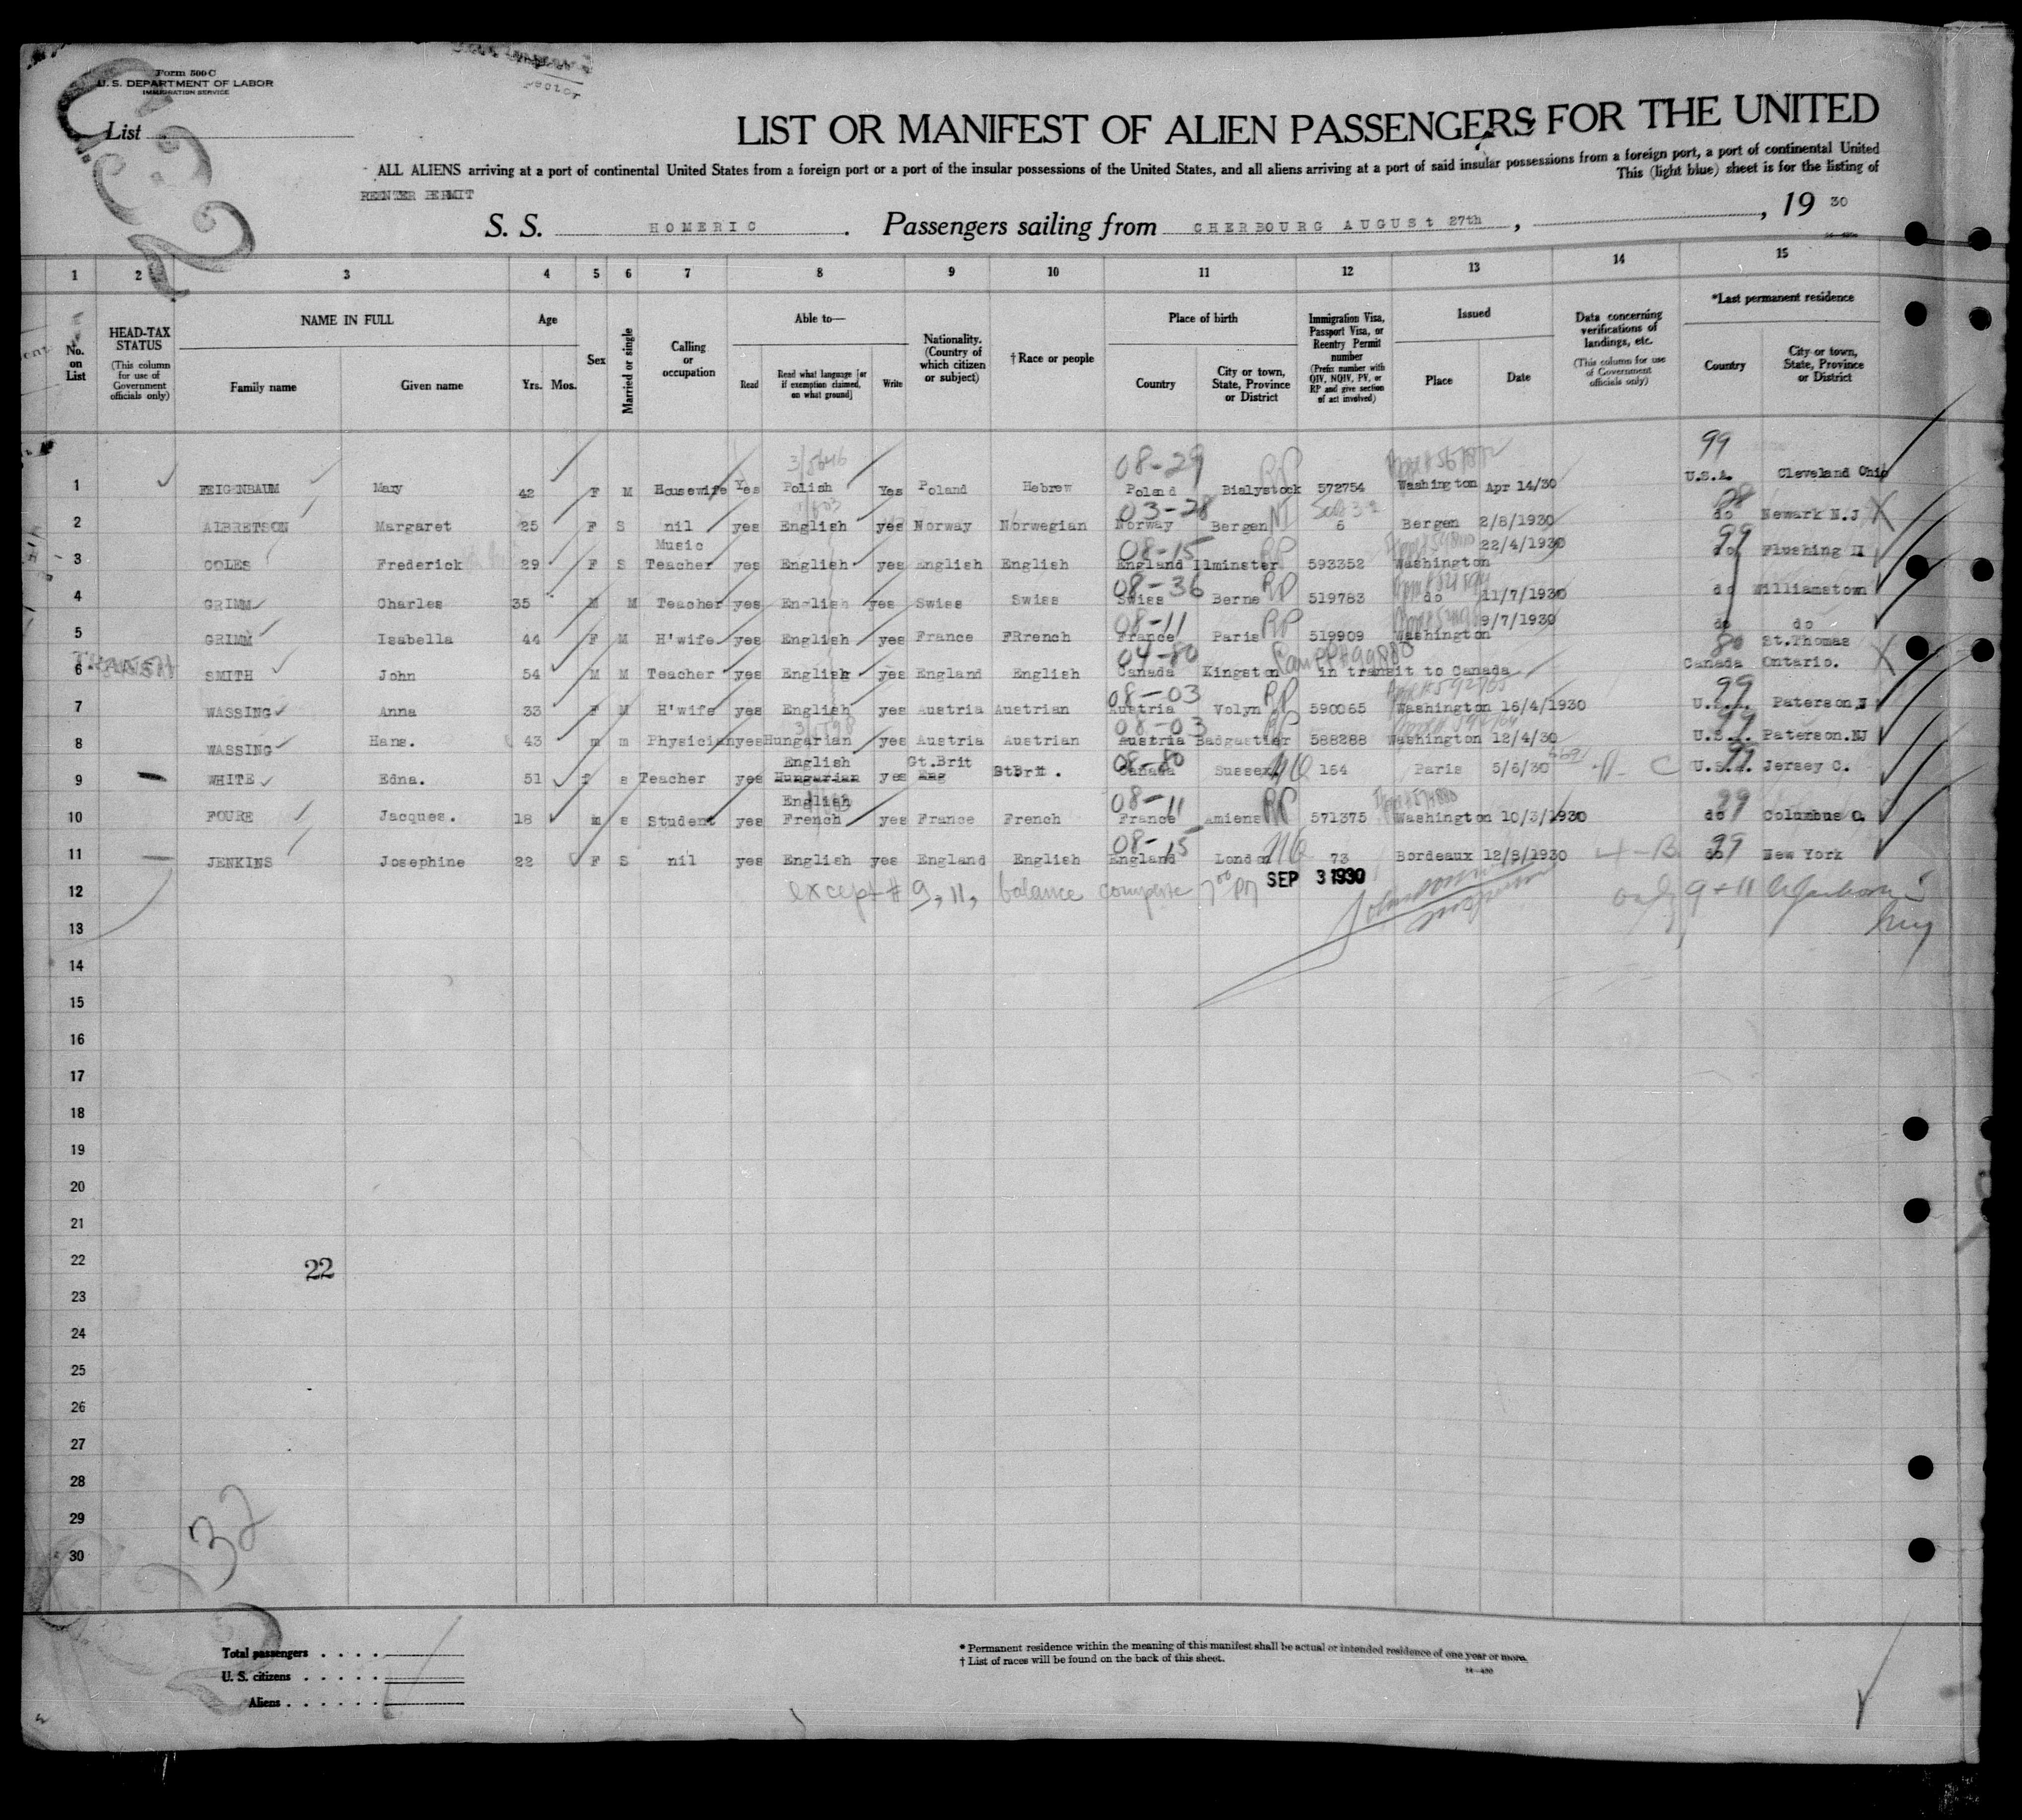 Form 500-C
U. S. DEPARTMENT OF LABOR
IMMIGRATION SERVICE
List
LIST OR MANIFEST OF ALIEN PASSENGERS FOR THE UNITED
ALL ALIENS arriving at a port of continental United States from a foreign port or a port of the insular possessions of the United States, and all aliens arriving at a port of said insular possessions from a foreign port, a port of continental United
This (light blue) sheet is for the listing of
REENTER PERMIT
S. S. HOMERIC. Passengers sailing from CHERBOURG AUGUSt 27th, , 19 30
1 2 3 4 5 6 7 8 9 10 11 12 13 14 15
No. on List
HEAD-TAX STATUS (This column for use of Government officials only)
NAME IN FULL Family name Given name
Age Yrs. Mos.
Sex
Married or single
Calling or occupation
Able to— Read Read what language [or if exemption claimed, on what ground] Write
Nationality. (Country of which citizen or subject)
† Race or people
Place of birth Country City or town, State, Province or District
Immigration Visa, Passport Visa, or Reentry Permit number (Prefix number with QIV, NQIV, PV, or RP and give section of act involved)
Issued Place Date
Data concerning verifications of landings, etc. (This column for use of Government officials only)
*Last permanent residence Country City or town, State, Province or District
08-29 RP 99
1 FEIGENBAUM Mary 42 F M Housewife Yes Polish Yes Poland Hebrew Poland Bialystock 572754 Washington Apr 14/30 U.S.A. Cleveland Ohio
03-28
2 ALBRETSON Margaret 25 F S nil yes English yes Norway Norwegian Norway Bergen 6 Bergen 2/8/1930 do Newark N.J
08-15 RP 99
3 COLES Frederick 29 F S Music Teacher yes English yes English English England Ilminster 593352 Washington 22/4/1930 do Flushing
08-36 RP
4 GRIMM Charles 35 M M Teacher yes English yes Swiss Swiss Swiss Berne 519783 do 11/7/1930 do Williamstown
08-11 RP
5 GRIMM Isabella 44 F M H'wife yes English yes France FRrench France Paris 519909 Washington 9/7/1930 do do
04-80 80
6 SMITH John 54 M M Teacher yes English yes England English Canada Kingston in transit to Canada Canada St.Thomas Ontario.
08-03 RP 99
7 WASSING Anna 33 F M H'wife yes English yes Austria Austrian Austria Volyn 590065 Washington 16/4/1930 U.S.A. Paterson,N
08-03 RP 99
8 WASSING Hans. 43 m m Physician yes Hungarian yes Austria Austrian Austria Badgastier 588288 Washington 12/4/30 U.S.A. Paterson.NJ
08-80 99
9 WHITE Edna. 51 f s Teacher yes English Hungarian yes Gt.Brit Eng StBrit. Canada Sussex 164 Paris 5/6/30 U.S.A. Jersey C.
08-11 RP 99
10 FOURE Jacques. 18 m s Student yes English French yes France French France Amiens 571375 Washington 10/3/1930 do Columbus O.
08-15 99
11 JENKINS Josephine 22 F S nil yes English yes England English England London 73 Bordeaux 12/8/1930 4-B do New York
12 except # 9, 11, balance complete 7 00 PM SEP 3 1930 only 9 + 11
13
14
15
16
17
18
19
20
21
22 22
23
24
25
26
27
28
29
30
32
Total passengers
U. S. citizens
Aliens
* Permanent residence within the meaning of this manifest shall be actual or intended residence of one year or more.
† List of races will be found on the back of this sheet.
14—430